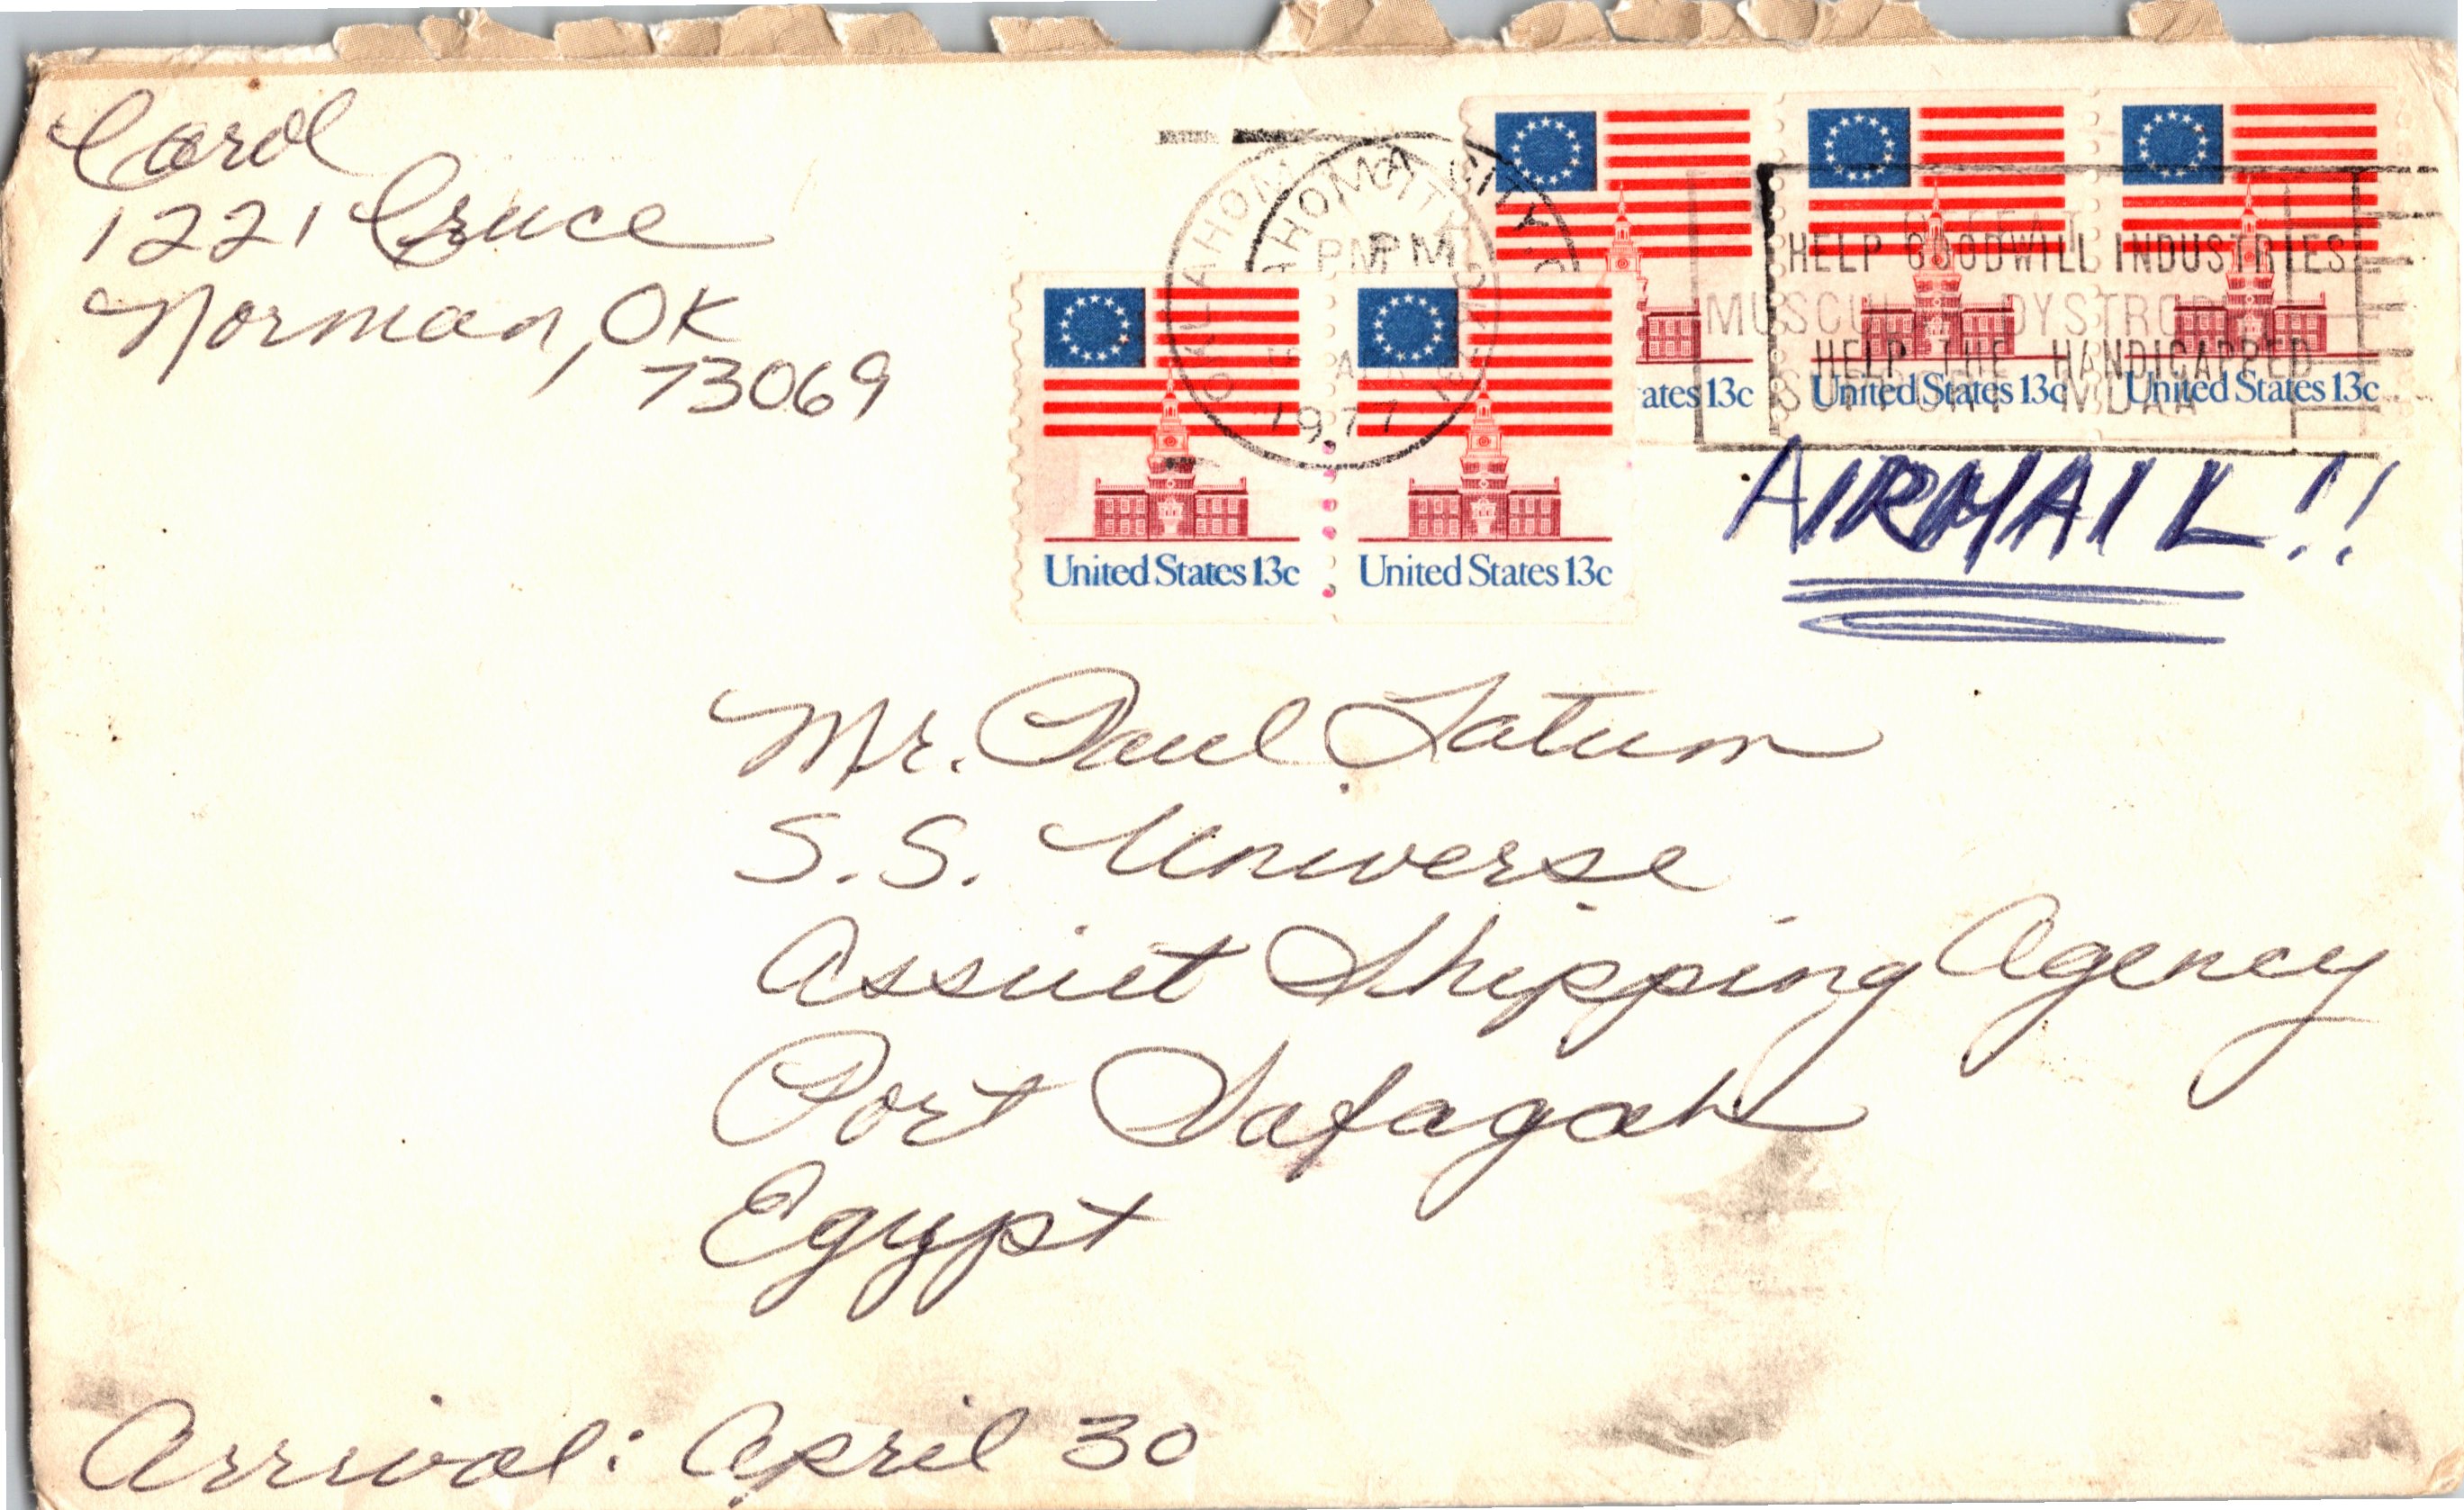 Carol
1221 Cruce
Norman, OK
73069
OKLAHOMA CITY, O
OKLAHOMA CITY
PM PM
1977
HELP GOODWILL INDUSTRIES
MUSCULAR DYSTROPHY
HELP THE HANDICAPPED
SUPPORT MDAA
ates 13c
United States 13c
United States 13c
United States 13c
United States 13c
AIRMAIL!!
Mr. Paul Tatum
S.S. Universe
Assuit Shipping Agency
Port Safagah
Egypt
Arrival: April 30